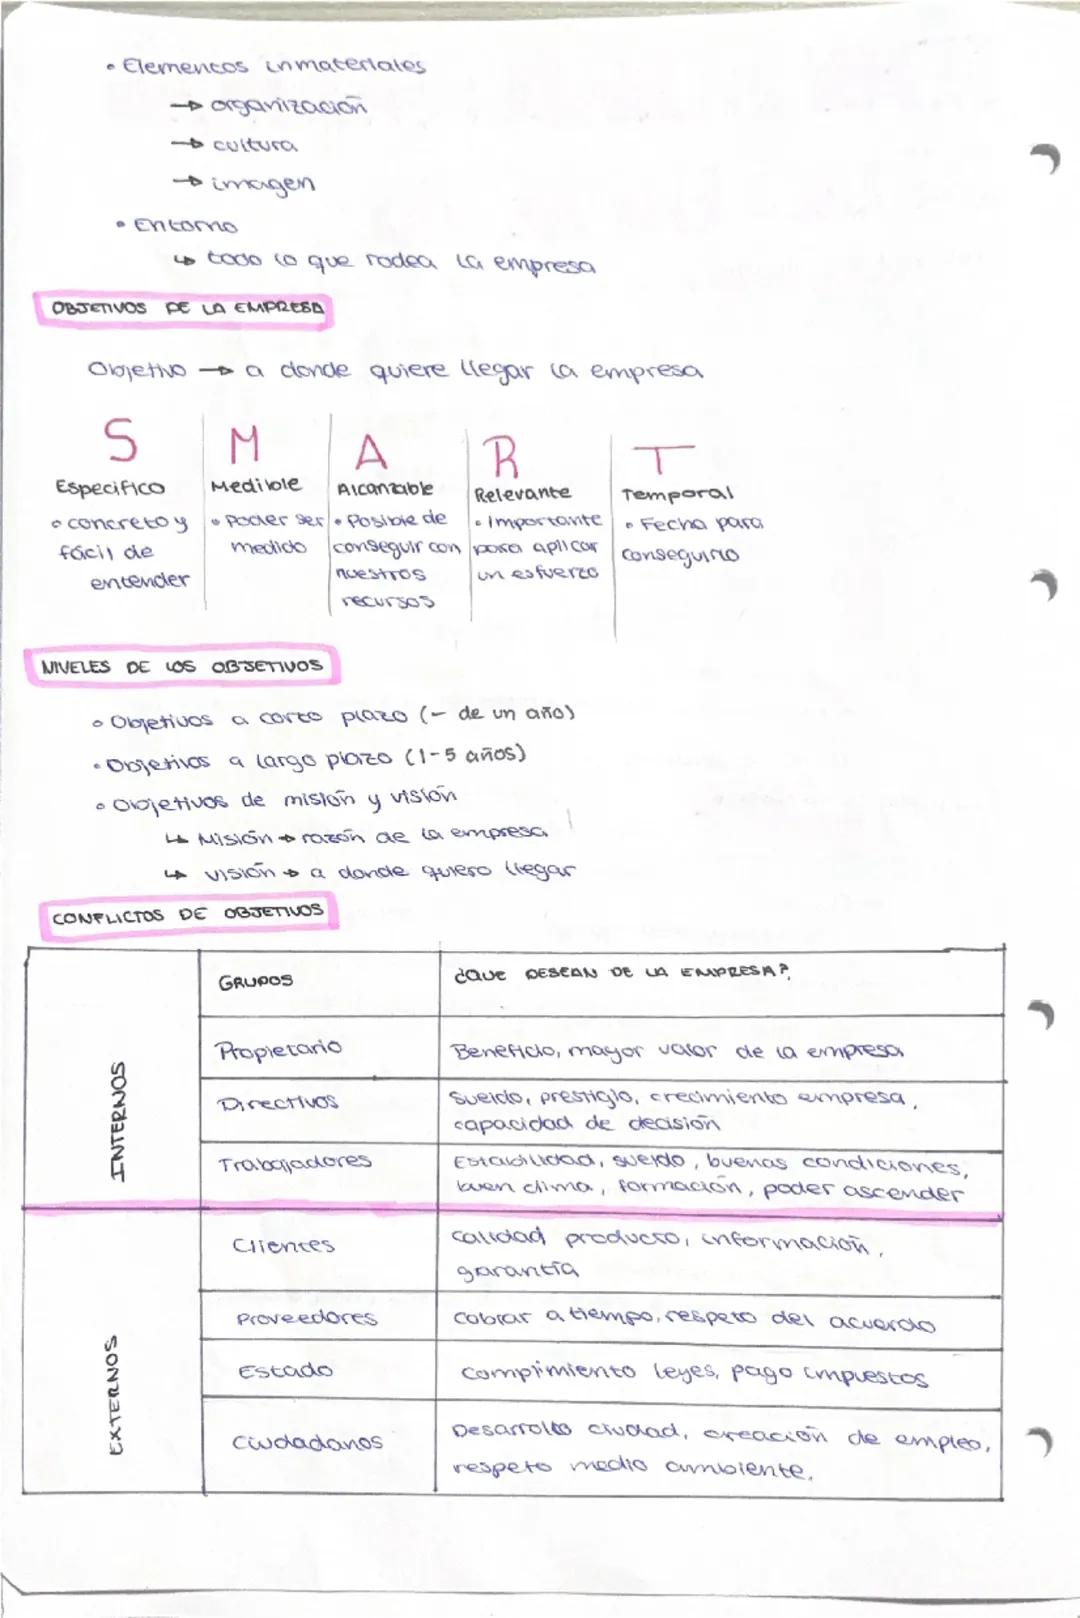 • Elementos inmateriales
→ organización
→ cultura
→ imagen
• Entorno
↳ todo lo que rodea la empresa
OBJETIVOS DE LA EMPRESA
Objetivo → a donde quiere llegar la empresa
S M A R T
Especifico Medible Alcanzable Relevante Temporal
• concreto y • Poder ser • Posible de • Importante • Fecha para
fácil de medido conseguir con para aplicar conseguirlo
entender nuestros un esfuerzo
recursos
NIVELES DE LOS OBJETIVOS
• Objetivos a corto plazo (- de un año)
• Objetivos a largo plazo (1-5 años)
• Objetivos de misión y visión
↳ Misión → razón de la empresa
↳ visión → a donde quiero llegar
CONFLICTOS DE OBJETIVOS
GRUPOS ¿QUE DESEAN DE LA EMPRESA?
INTERNOS
Propietario Beneficio, mayor valor de la empresa
Directivos sueldo, prestigio, crecimiento empresa,
capacidad de decisión
Trabajadores Estabilidad, sueldo, buenas condiciones,
buen clima, formación, poder ascender
EXTERNOS
Clientes calidad producto, información,
garantía
Proveedores cobrar a tiempo, respeto del acuerdo
Estado Complimiento leyes, pago impuestos
Ciudadanos Desarrollo ciudad, creación de empleo,
respeto medio ambiente.